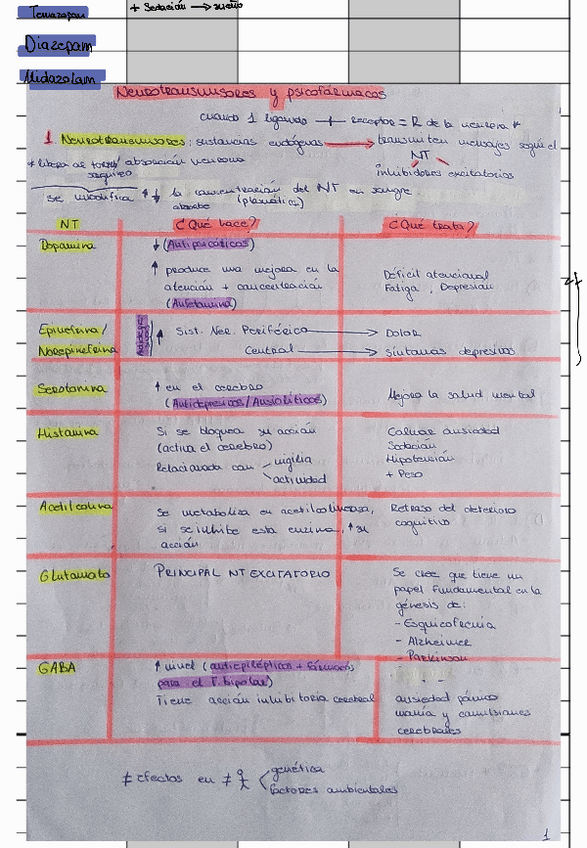 Temazepam
+ Sedación → sueño
Diazepam
Midazolam
Neurotransmisores y psicofármacos
cuando 1 ligando + receptor = R de la neurona *
1 Neurotransmisores: sustancias endógenas → transmiten mensajes según el
NT
inhibidores excitatorios
* libera al torr. sanguíneo / absorción neurona
se modifica ↑↓ la concentración del NT en sangre
(plasmática)
NT ¿Qué hace? ¿Qué trata?
Dopamina
↓ (Antipsicóticos)
↑ produce una mejora en la
atención + concentración
(Anfetamina)
Déficit atencional
Fatiga, Depresión
Epinefrina/
Norepinefrina
↑ Sist. Ner. Periférico → Dolor
Central → síntomas depresivos
Serotonina
↑ en el cerebro
(Antidepresivos/Ansiolíticos)
Mejora la salud mental
Histamina
Si se bloquea su acción
(activa el cerebro)
Relacionada con vigilia
actividad
Calmar ansiedad
Sedación
Hipotensión
+ Peso
Acetilcolina
Se metaboliza en acetilcolinesa,
si se inhibe esta enzima, ↑ su
acción
Retraso del deterioro
cognitivo
Glutamato
PRINCIPAL NT EXCITATORIO
Se cree que tiene un
papel fundamental en la
génesis de:
- Esquizofrenia
- Alzheimer
- Parkinson
GABA
↑ nivel (antiepilépticos + fármacos
para el T. bipolar)
Tiene acción inhibitoria cerebral
ansiedad pánico
manía y convulsiones
cerebrales
≠ efectos en ≠ genética
factores ambientales
1